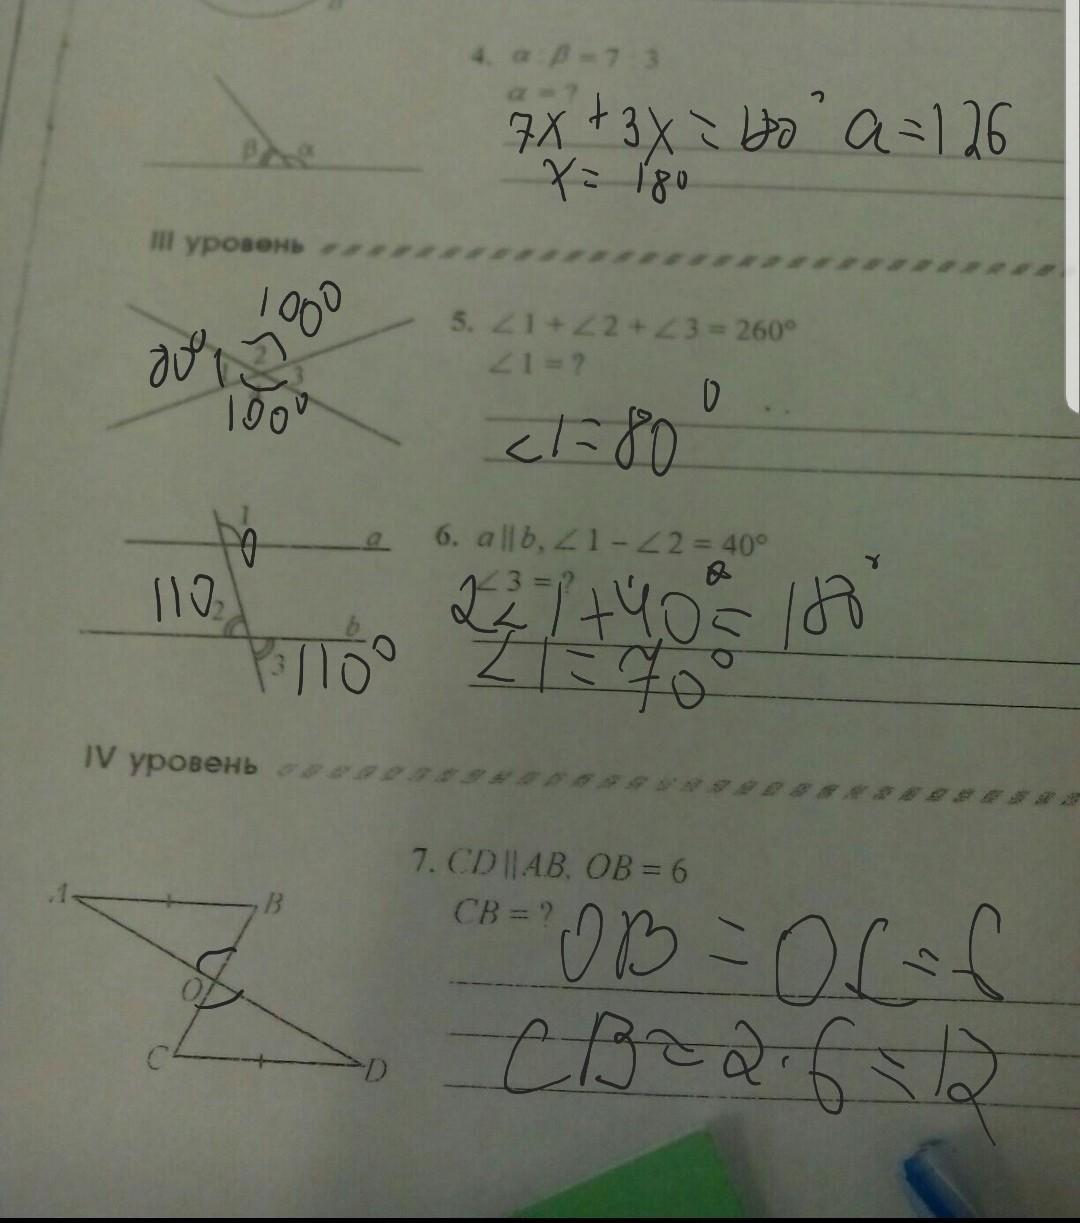 4. α : β = 7 : 3
α = ?
7x + 3x = 180° a = 126
x = 180
β α
III уровень
100°
80° 1 2 3
100°
5. ∠1 + ∠2 + ∠3 = 260°
∠1 = ?
∠1 = 80°
1
a
110 2
b
3 110°
6. a || b, ∠1 − ∠2 = 40°
∠3 = ?
2∠1 + 40° = 180°
∠1 = 70°
IV уровень
A B
O
C D
7. CD || AB, OB = 6
CB = ?
OB = OC = 6
CB = 2 · 6 = 12